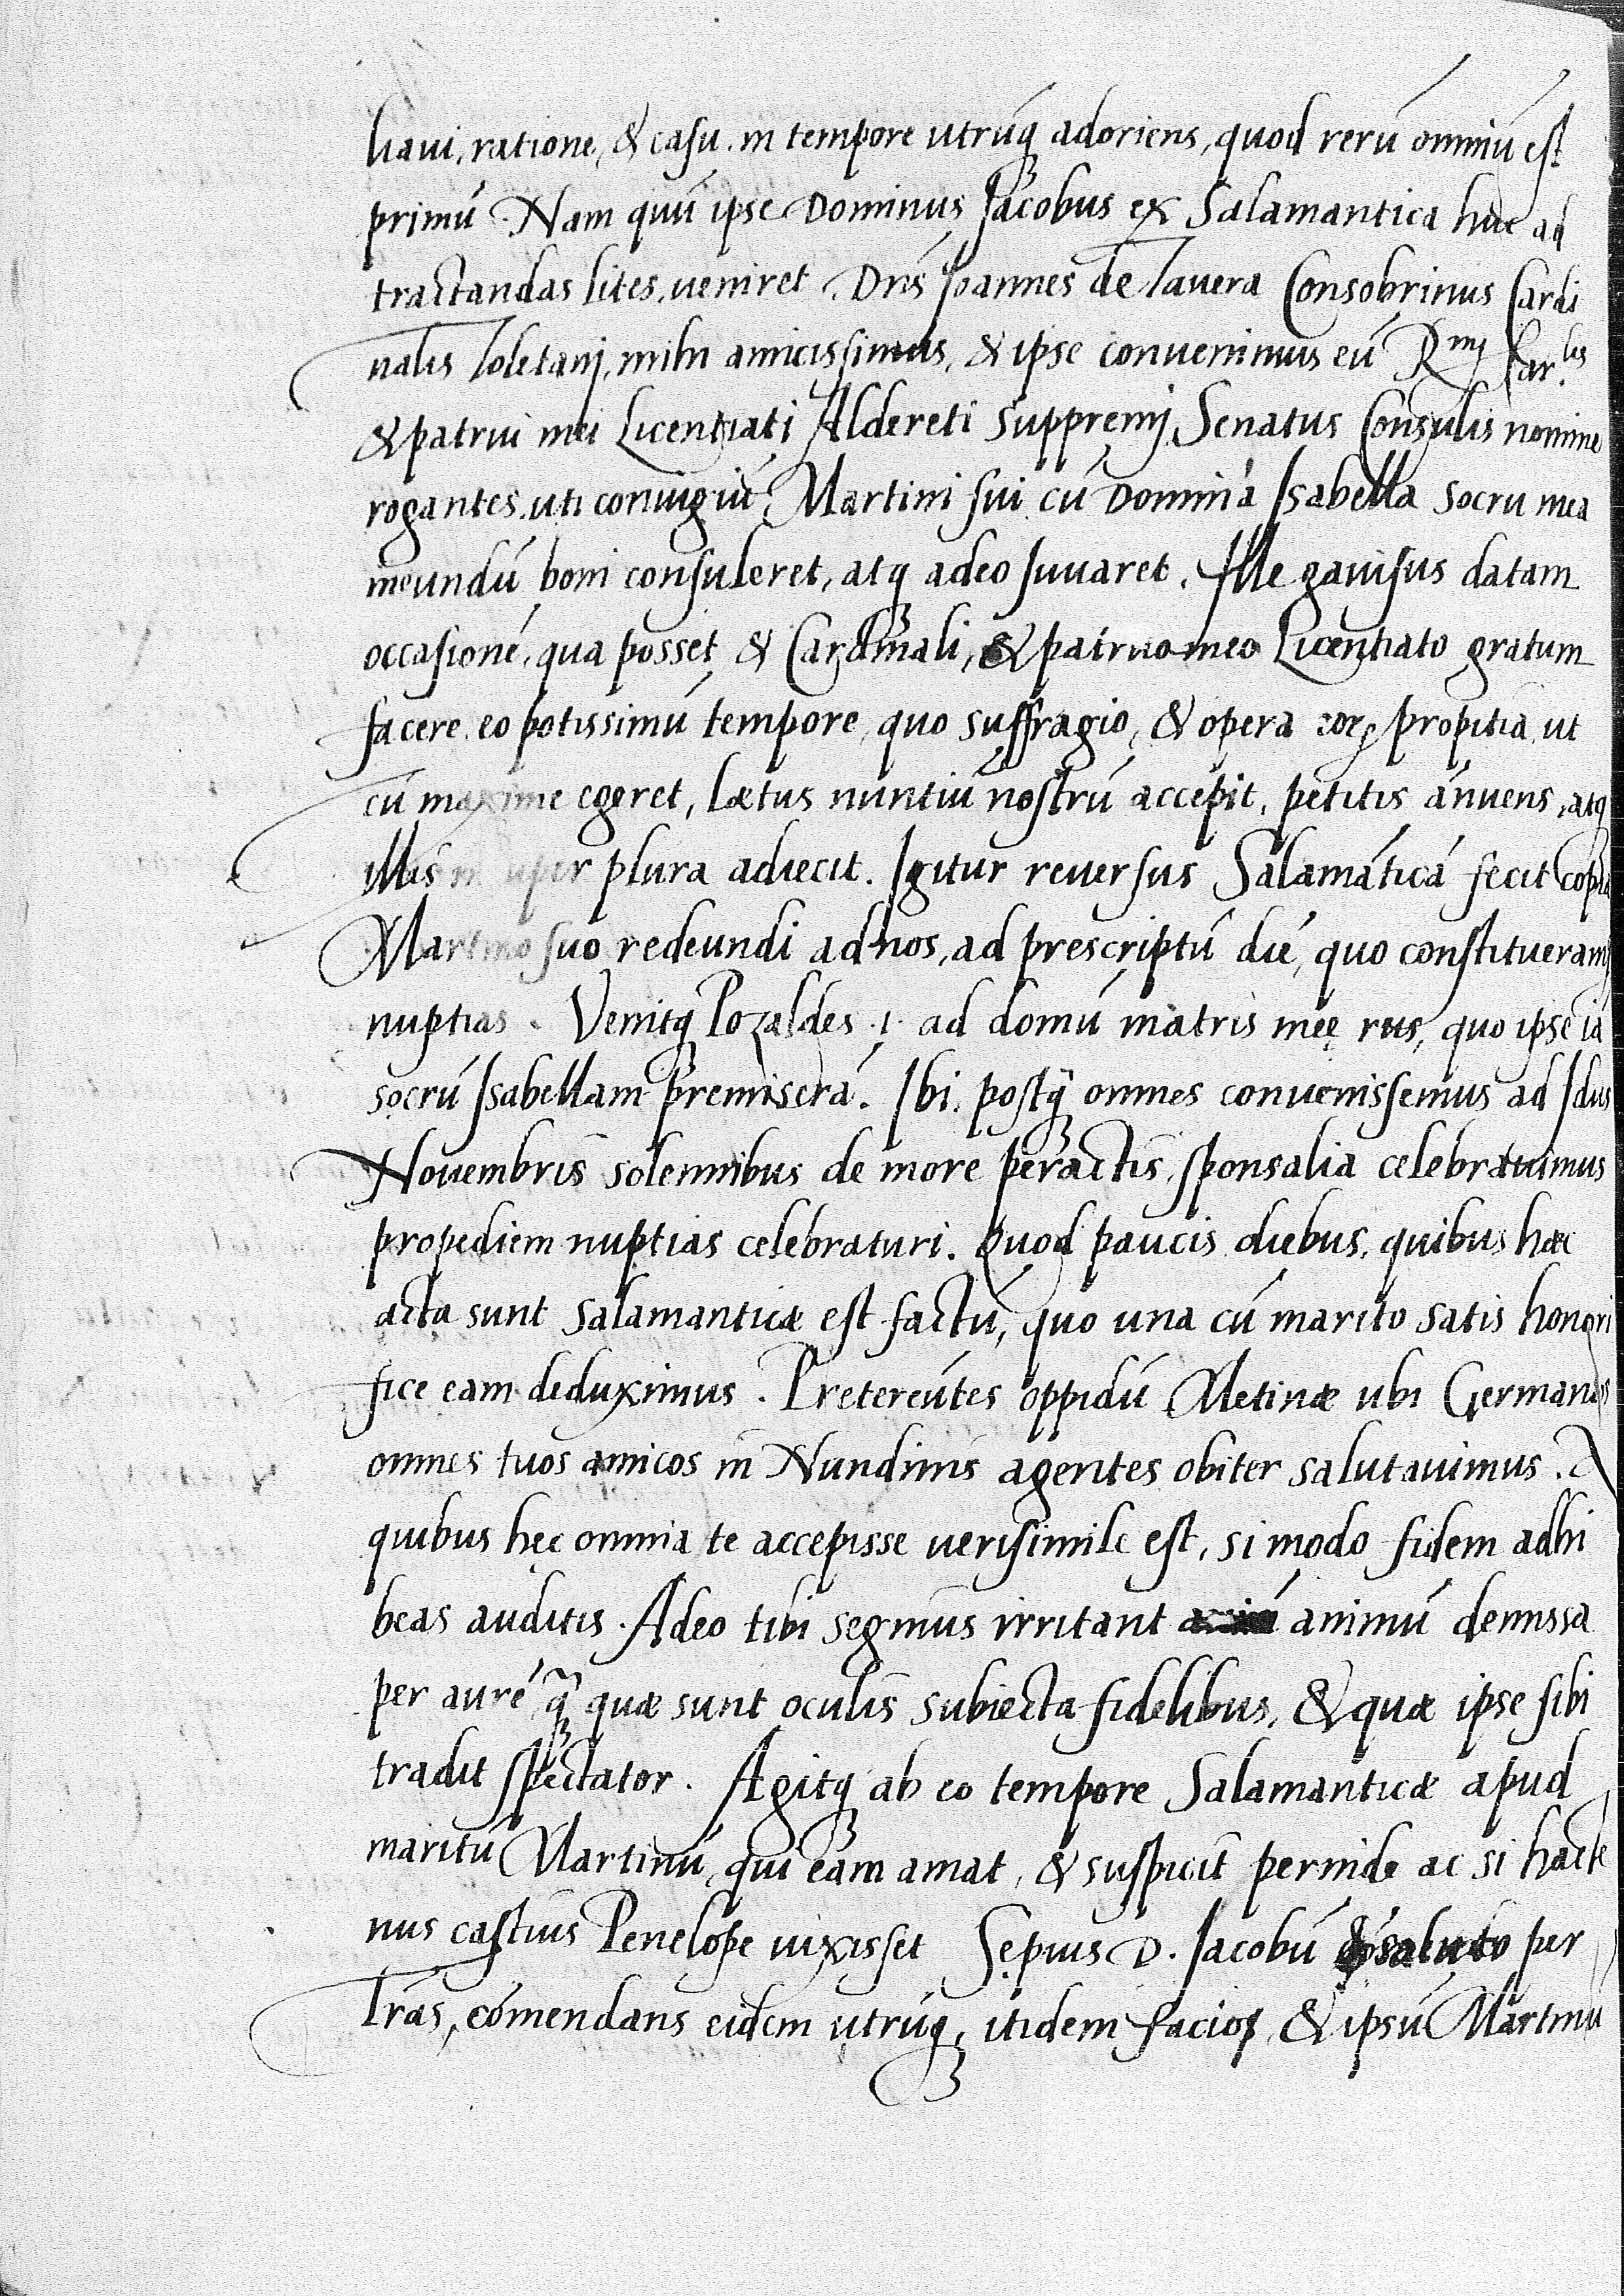 liavi, ratione, & casu. in tempore utrūq adoriens, quod rerū omniū est
primū. Nam quū ipse Dominus Jacobus ex Salamantica huc ad
tractandas lites, veniret. Dns̄ Joannes de Tavera Consobrinus Cardi
nalis Toletanj, mihi amicissimus, & ipse convenimus eū Rmj Car.lis
& patrui mei Licentiati Aldereti suppremj Senatus Consulis nomine
rogantes, uti coniugiū Martini sui cū Domina Isabella socru mea
ineundū boni consuleret, atq adeo iuvaret. Ille gavisus datam
occasionē, qua posset & Cardinali, & patruo meo Licentiato gratum
facere, eo potissimū tempore, quo suffragio, & opera eoꝝ propitia, ut
cū maxime egeret, lætus nuntiū nostrū accepit, petitis ānuens, atq
illis plura adiecit. Igitur reversus Salamāticā fecit copiā
Martino suo redeundi ad nos, ad prescriptū diē, quo constitueramus
nuptias. Venitq Pozaldes .i. ad domū matris meę rus, quo ipse iā
socrū Isabellam premiserā. Ibi postq̄ omnes convenissemus ad Idus
Novembris solemnibus de more peractis, sponsalia celebravimus
propediem nuptias celebraturi. Quod paucis diebus, quibus hæc
acta sunt Salamanticæ est factū, quo una cū marito satis honori
fice eam deduximus. Pretereūtes oppidū Metinæ ubi Germanos
omnes tuos amicos in Nundinis agentes obiter salutavimus. A
quibus hęc omnia te accepisse verisimile est, si modo fidem adhi
beas auditis. Adeo tibi segnius irritant animū demissa
per aurē q̄ quæ sunt oculis subiecta fidelibus, & quæ ipse sibi
tradit spectator. Agitq ab eo tempore Salamanticæ apud
maritū Martinū, qui eam amat, & suspicit perinde ac si hacte
nus castius Penelope vixisset Sępius D. Jacobū saluto per
lr̄as, cōmendans eidem utrūq, itidem facios & ipsū Martinū